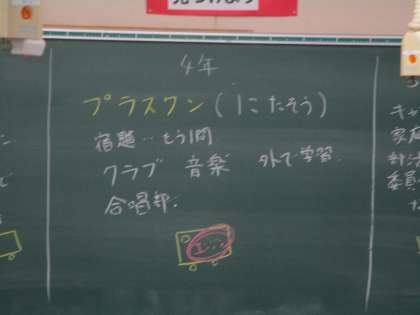 4年
プラスワン(1こたそう)
宿題…もう1問
クラブ 音楽 外で学習.
合唱部.
キャ
家庭
委員